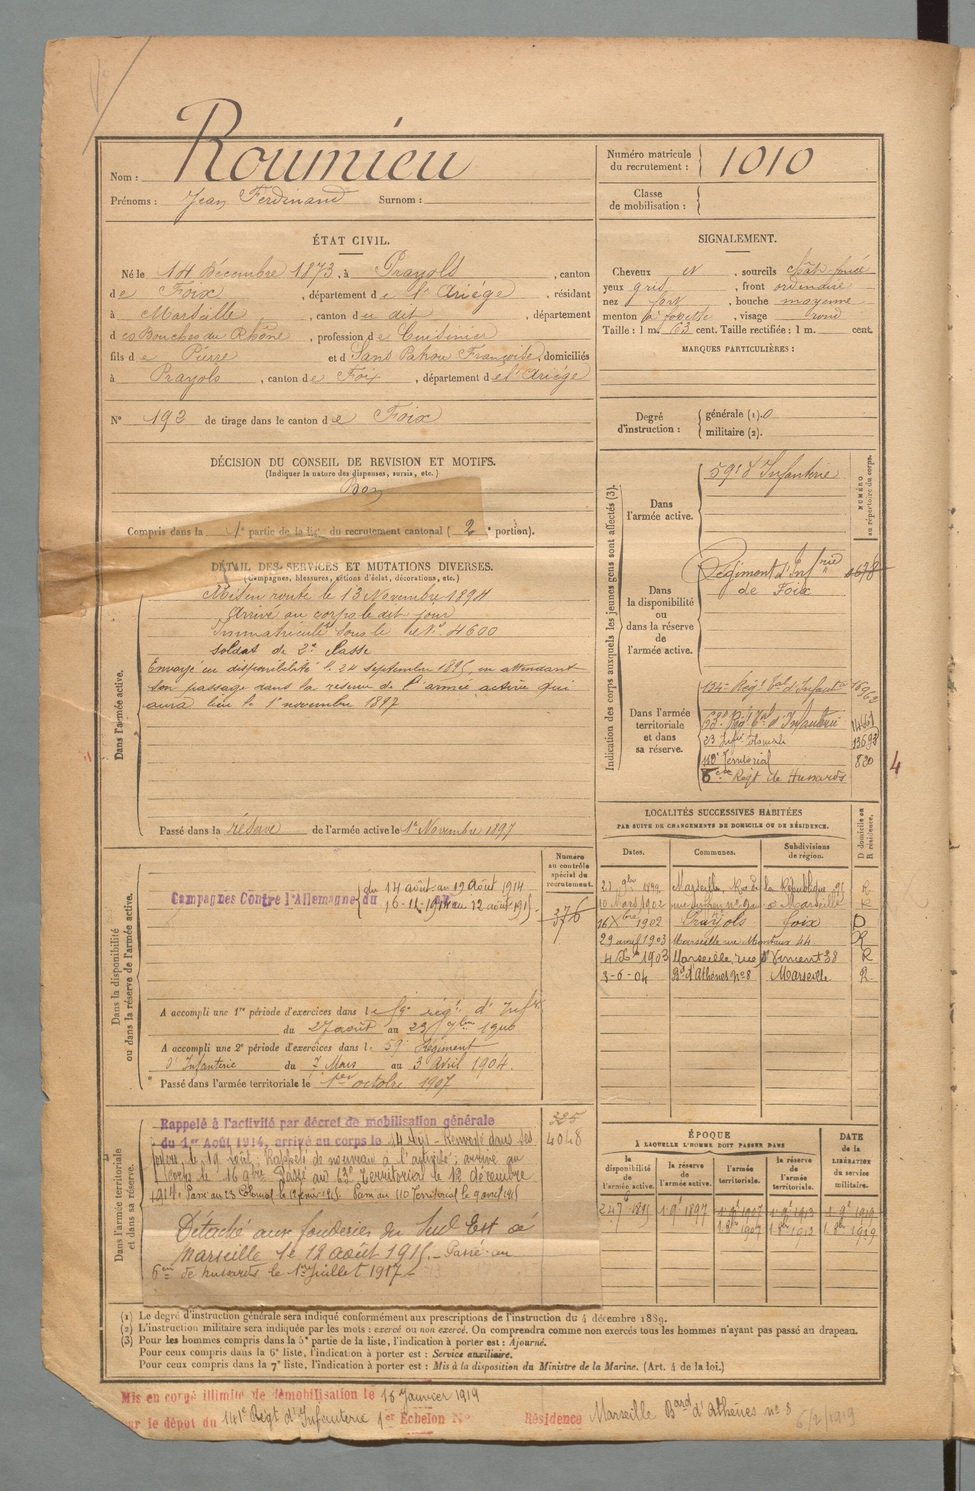 Nom : Roumieu
Prénoms : Jean Ferdinand Surnom :
Numéro matricule du recrutement : 1010
Classe de mobilisation :
ÉTAT CIVIL.
Né le 14 Décembre 1873, à Prayols, canton
de Foix, département de l'Ariége, résidant
à Marseille, canton de dit, département
des Bouches du Rhône, profession de Cuisinier
fils de Pierre et d Sans Pahou Françoise, domiciliés
à Prayols, canton de Foix, département de l'Ariége
N° 192 de tirage dans le canton de Foix
SIGNALEMENT.
Cheveux N, sourcils chât. foncé
yeux gris, front ordinaire
nez fort, bouche moyenne
menton à fossette, visage rond
Taille : 1 m. 63 cent. Taille rectifiée : 1 m. cent.
MARQUES PARTICULIÈRES :
Degré d'instruction : générale (1). 0
militaire (2).
DÉCISION DU CONSEIL DE REVISION ET MOTIFS.
(Indiquer la nature des dispenses, sursis, etc.)
Bon
Compris dans la 1e partie de la liste du recrutement cantonal ( 2e portion).
DÉTAIL DES SERVICES ET MUTATIONS DIVERSES.
(Campagnes, blessures, actions d'éclat, décorations, etc.)
Dans l'armée active.
Mis en route le 13 Novembre 1894
Arrivé au corps le dit jour
Immatriculé sous le N° 4600
soldat de 2e classe
Envoyé en disponibilité le 24 septembre 1895, en attendant
son passage dans la réserve de l'armée active qui
aura lieu le 1er novembre 1897
Passé dans la réserve de l'armée active le 1er Novembre 1897
Indication des corps auxquels les jeunes gens sont affectés (3).
NUMÉRO au répertoire du corps.
Dans l'armée active.
59e d'Infanterie
Dans la disponibilité ou dans la réserve de l'armée active.
Régiment d'Infrie
de Foix
Dans l'armée territoriale et dans sa réserve.
134e Régt Tal d'Infante
63e Régt Tal d'Infanterie
23 Infie Coloniale 13693
110e Territorial 820
6eme Régt de Hussards
4
LOCALITÉS SUCCESSIVES HABITÉES
PAR SUITE DE CHANGEMENTS DE DOMICILE OU DE RÉSIDENCE.
D domicile ou R résidence.
Dates. Communes. Subdivisions de région.
Marseille, R. de la République R
10 Mars 1902 Marseille R
16 Xbre 1902 Prayols Foix D
29 avril 1903 Marseille rue 44 R
1903 Marseille, rue St Vincent 38 R
3-6-04 Bd d'Athènes n° 8 Marseille R
Dans la disponibilité ou dans la réserve de l'armée active.
Numéro au contrôle spécial du recrutement.
376
Campagnes Contre l'Allemagne du
du 14 août au 19 Août 1914
16-11-1914 au 12 août 1915
A accompli une 1re période d'exercices dans le 59e régt d'Infie
du 27 août au 23 7bre 1900
A accompli une 2e période d'exercices dans le 59e Régiment
d'Infanterie du 7 Mars au 3 Avril 1904.
Passé dans l'armée territoriale le 1er octobre 1907
Dans l'armée territoriale et dans sa réserve.
325
4048
Rappelé à l'activité par décret de mobilisation générale
du 1er Août 1914, arrivé au corps le 14 Août - Renvoyé dans ses
foyers le 19 août. Rappelé de nouveau à l'activité ; arrivé au
corps le 16 9bre. Passé au 63e Territorial le 12 décembre
1914. Passé au 23 Colonial le 1915. Passé au 110 Territorial le 9 avril 1915
Détaché aux fonderies du Sud Est à
Marseille le 12 août 1915 - Passé au
6eme de hussards le 1er juillet 1917
ÉPOQUE
À LAQUELLE L'HOMME DOIT PASSER DANS
la disponibilité de l'armée active. la réserve de l'armée active. l'armée territoriale. la réserve de l'armée territoriale.
DATE de la LIBÉRATION du service militaire.
24 7e 1895 1 9e 1897 1 9e 1907 1 9e 1913 1 9e 1919
1 8bre 1907 1 8bre 1913 1 8bre 1919
(1) Le degré d'instruction générale sera indiqué conformément aux prescriptions de l'instruction du 4 décembre 1889.
(2) L'instruction militaire sera indiquée par les mots : exercé ou non exercé. On comprendra comme non exercés tous les hommes n'ayant pas passé au drapeau.
(3) Pour les hommes compris dans la 5e partie de la liste, l'indication à porter est : Ajourné.
Pour ceux compris dans la 6e liste, l'indication à porter est : Service auxiliaire.
Pour ceux compris dans la 7e liste, l'indication à porter est : Mis à la disposition du Ministre de la Marine. (Art. 4 de la loi.)
Mis en congé illimité de démobilisation le 16 Janvier 1919
sur le dépôt du 141e Régt d'Infanterie 1er Échelon N° Résidence Marseille Bard d'Athènes n° 8
6/2/1919